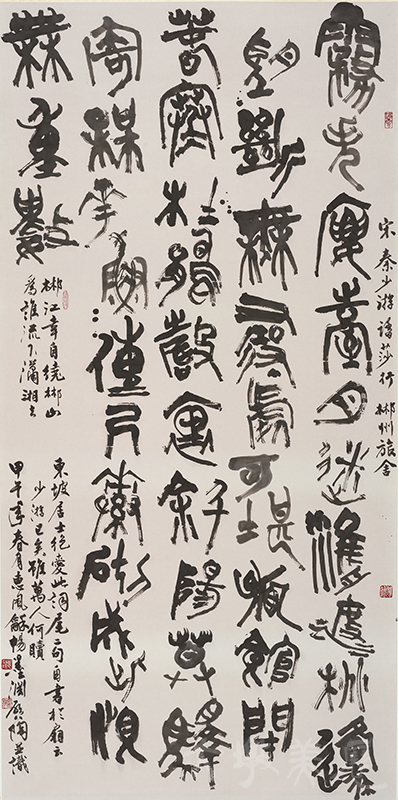 宋 秦少游 踏莎行 郴州旅舍
霧失樓臺月迷津渡桃源
望斷無尋處可堪孤館閉
春寒杜鵑聲裏斜陽暮驛
寄梅花魚傳尺素砌成此恨
無重數
郴江幸自繞郴山
為誰流下瀟湘去
東坡居士絕愛此詞尾二句自書於扇云
少游已矣雖萬人何贖
甲午年春月惠風龢暢並識